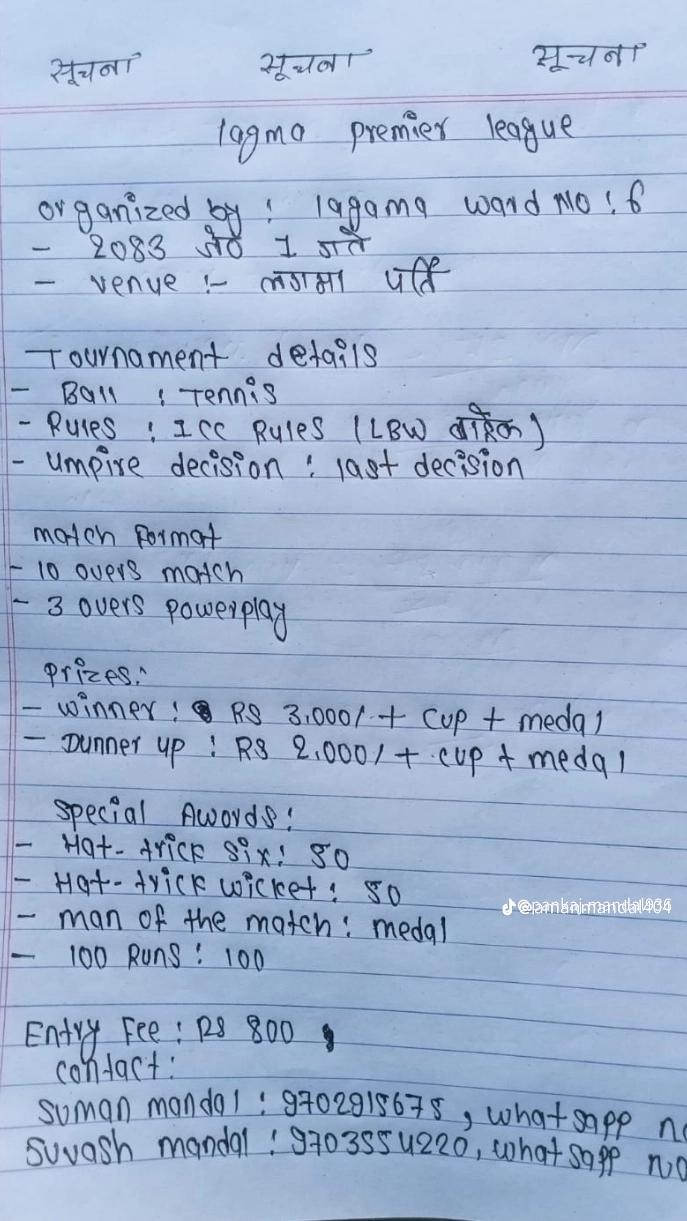 सूचना सूचना सूचना
lagma premier league
organized by : lagama ward no : 6
- 2083 जेठ 1 गते
- venue :- लगमा पर्ति
Tournament details
- Ball : Tennis
- Rules : ICC Rules (LBW बाहेक)
- Umpire decision : last decision
match format
- 10 overs match
- 3 overs powerplay
prizes:
- winner : RS 3,000/. + cup + medal
- Dunner up : RS 2,000/ + cup + medal
special Awords:
- Hat-trick six: 50
- Hat-trick wicket: 50
- man of the match: medal
- 100 Runs: 100
Entry Fee : RS 800
contact:
suman mandal : 9702915675, whatsapp no
suvash mandal : 9703554220, whatsapp no